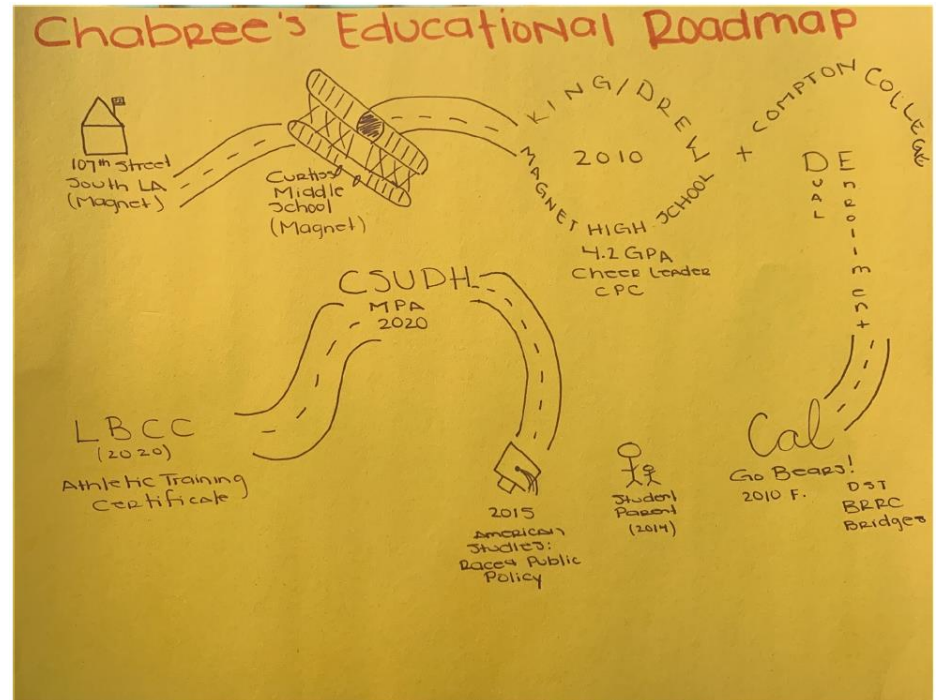 Chabree's Educational Roadmap
107th Street
South LA
(Magnet)
Curtiss
Middle
School
(Magnet)
KING/DREW
MAGNET HIGH SCHOOL
2010
4.2 GPA
Cheer Leader
CPC
+
COMPTON COLLEGE
DUAL
Enrollment
Cal
Go Bears!
2010 F.
DST
BRRC
Bridges
Student
Parent
(2014)
2015
American
Studies:
Race & Public
Policy
CSUDH
MPA
2020
LBCC
(2020)
Athletic Training
Certificate